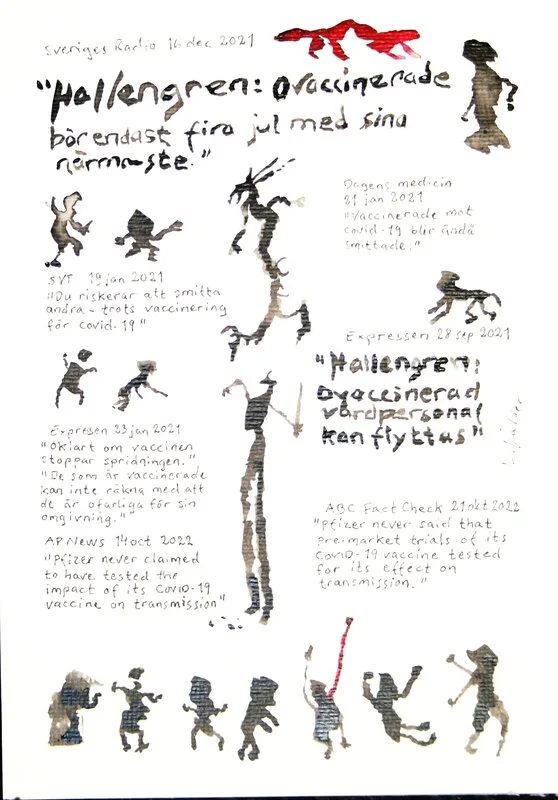 Sveriges Radio 16 dec 2021
"Hallengren: Ovaccinerade
bör endast fira jul med sina
närmaste."
Dagens medicin
21 jan 2021
"Vaccinerade mot
covid-19 blir ändå
smittade."
SVT 19 jan 2021
"Du riskerar att smitta
andra - trots vaccinering
för covid-19"
Expressen 28 sep 2021
"Hallengren:
ovaccinerad
vårdpersonal
kan flyttas"
Expressen 23 jan 2021
"Oklart om vaccinen
stoppar spridningen."
"De som är vaccinerade
kan inte räkna med att
de är ofarliga för sin
omgivning."
AP News 14 oct 2022
"Pfizer never claimed
to have tested the
impact of its COVID-19
vaccine on transmission"
ABC Fact Check 21 okt 2022
"Pfizer never said that
pre-market trials of its
COVID-19 vaccine tested
for its effect on
transmission."